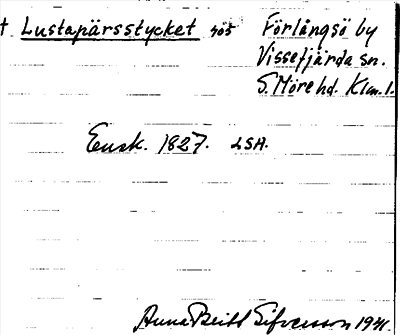 † Lustapärsstycket 405 Förlångsö by
Vissefjärda sn.
S. Möre hd. Klm. l.
Ensk. 1827. LSA.
Anna-Britt Sifversson 1941.